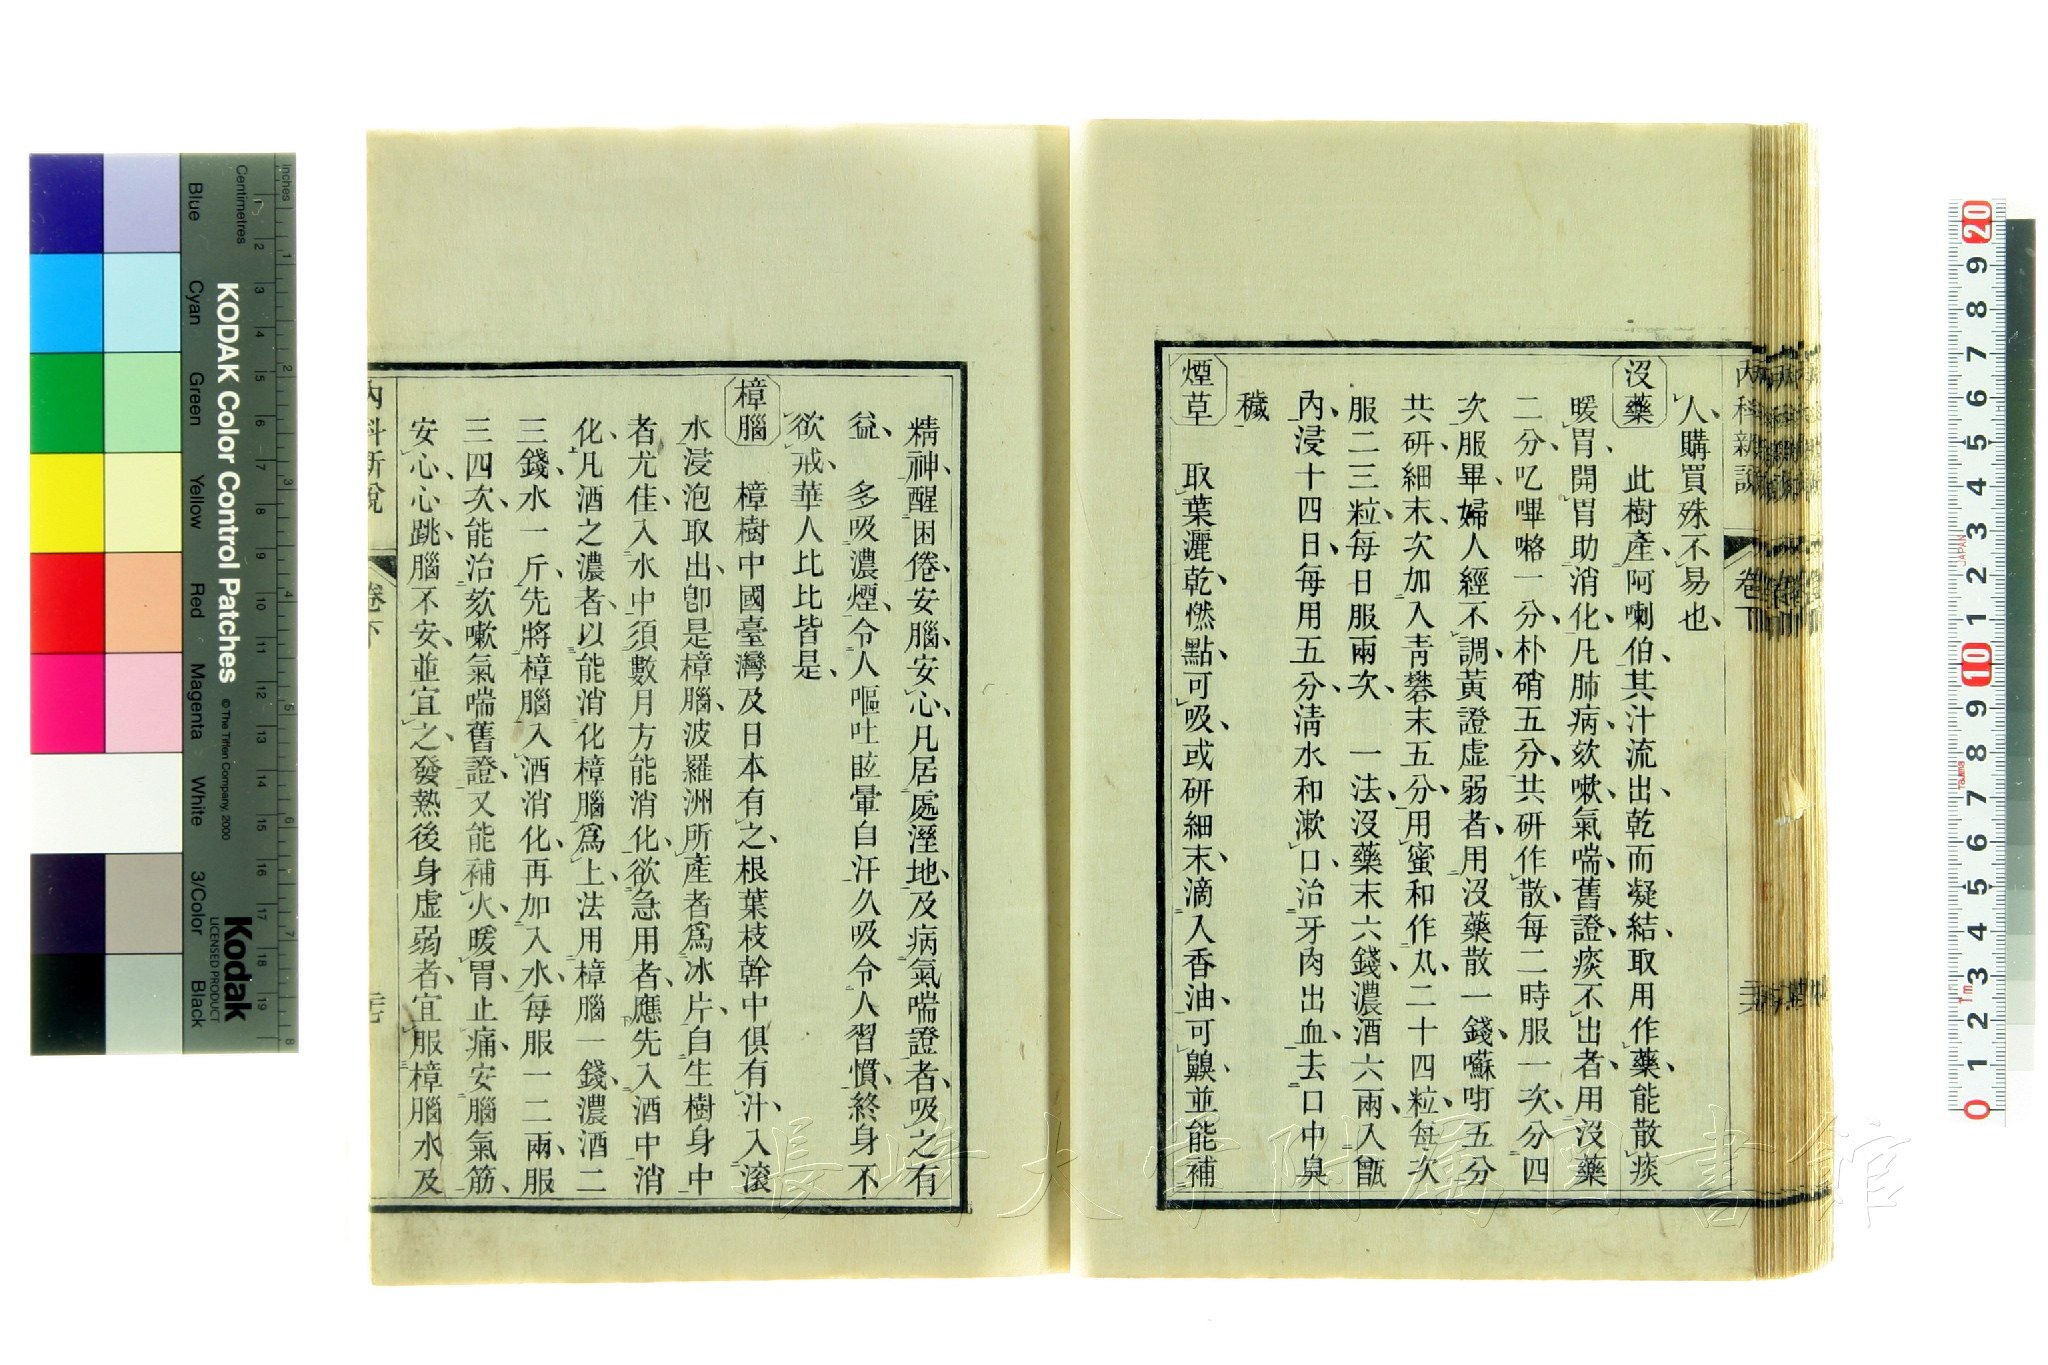 內科新說
卷下
人購買殊不易也
沒藥
此樹產阿喇伯其汁流出乾而凝結取用作藥能散痰
暖胃開胃助消化凡肺病欬嗽氣喘舊證痰不出者用沒藥
二分叱嗶嚕一分朴硝五分共研作散每二時服一次分四
次服畢婦人經不調黃證虛弱者用沒藥散一錢囌咁五分
共研細末次加入靑礬末五分用蜜和作丸二十四粒每次
服二三粒每日服兩次 一法沒藥末六錢濃酒六兩入甑
內浸十四日每用五分淸水和漱口治牙肉出血去口中臭
穢
煙草
取葉灑乾燃點可吸或研細末滴入香油可齅並能補
精神醒困倦安腦安心凡居處溼地及病氣喘證者吸之有
益 多吸濃煙令人嘔吐眩暈自汗久吸令人習慣終身不
欲戒華人比比皆是
樟腦
樟樹中國臺灣及日本有之根葉枝幹中俱有汁入滾
水浸泡取出卽是樟腦波羅洲所產者爲冰片自生樹身中
者尤佳入水中須數月方能消化欲急用者應先入酒中消
化凡酒之濃者以能消化樟腦爲上法用樟腦一錢濃酒二
三錢水一斤先將樟腦入酒消化再加入水每服一二兩服
三四次能治欬嗽氣喘舊證又能補火暖胃止痛安腦氣筋
安心心跳腦不安並宜之發熱後身虛弱者宜服樟腦水及
內科新說
卷下
KODAK Color Control Patches
© The Tiffen Company, 2000
Kodak
LICENSED PRODUCT
Inches
Centimetres
Blue
Cyan
Green
Yellow
Red
Magenta
White
3/Color
Black
長崎大学附属図書館